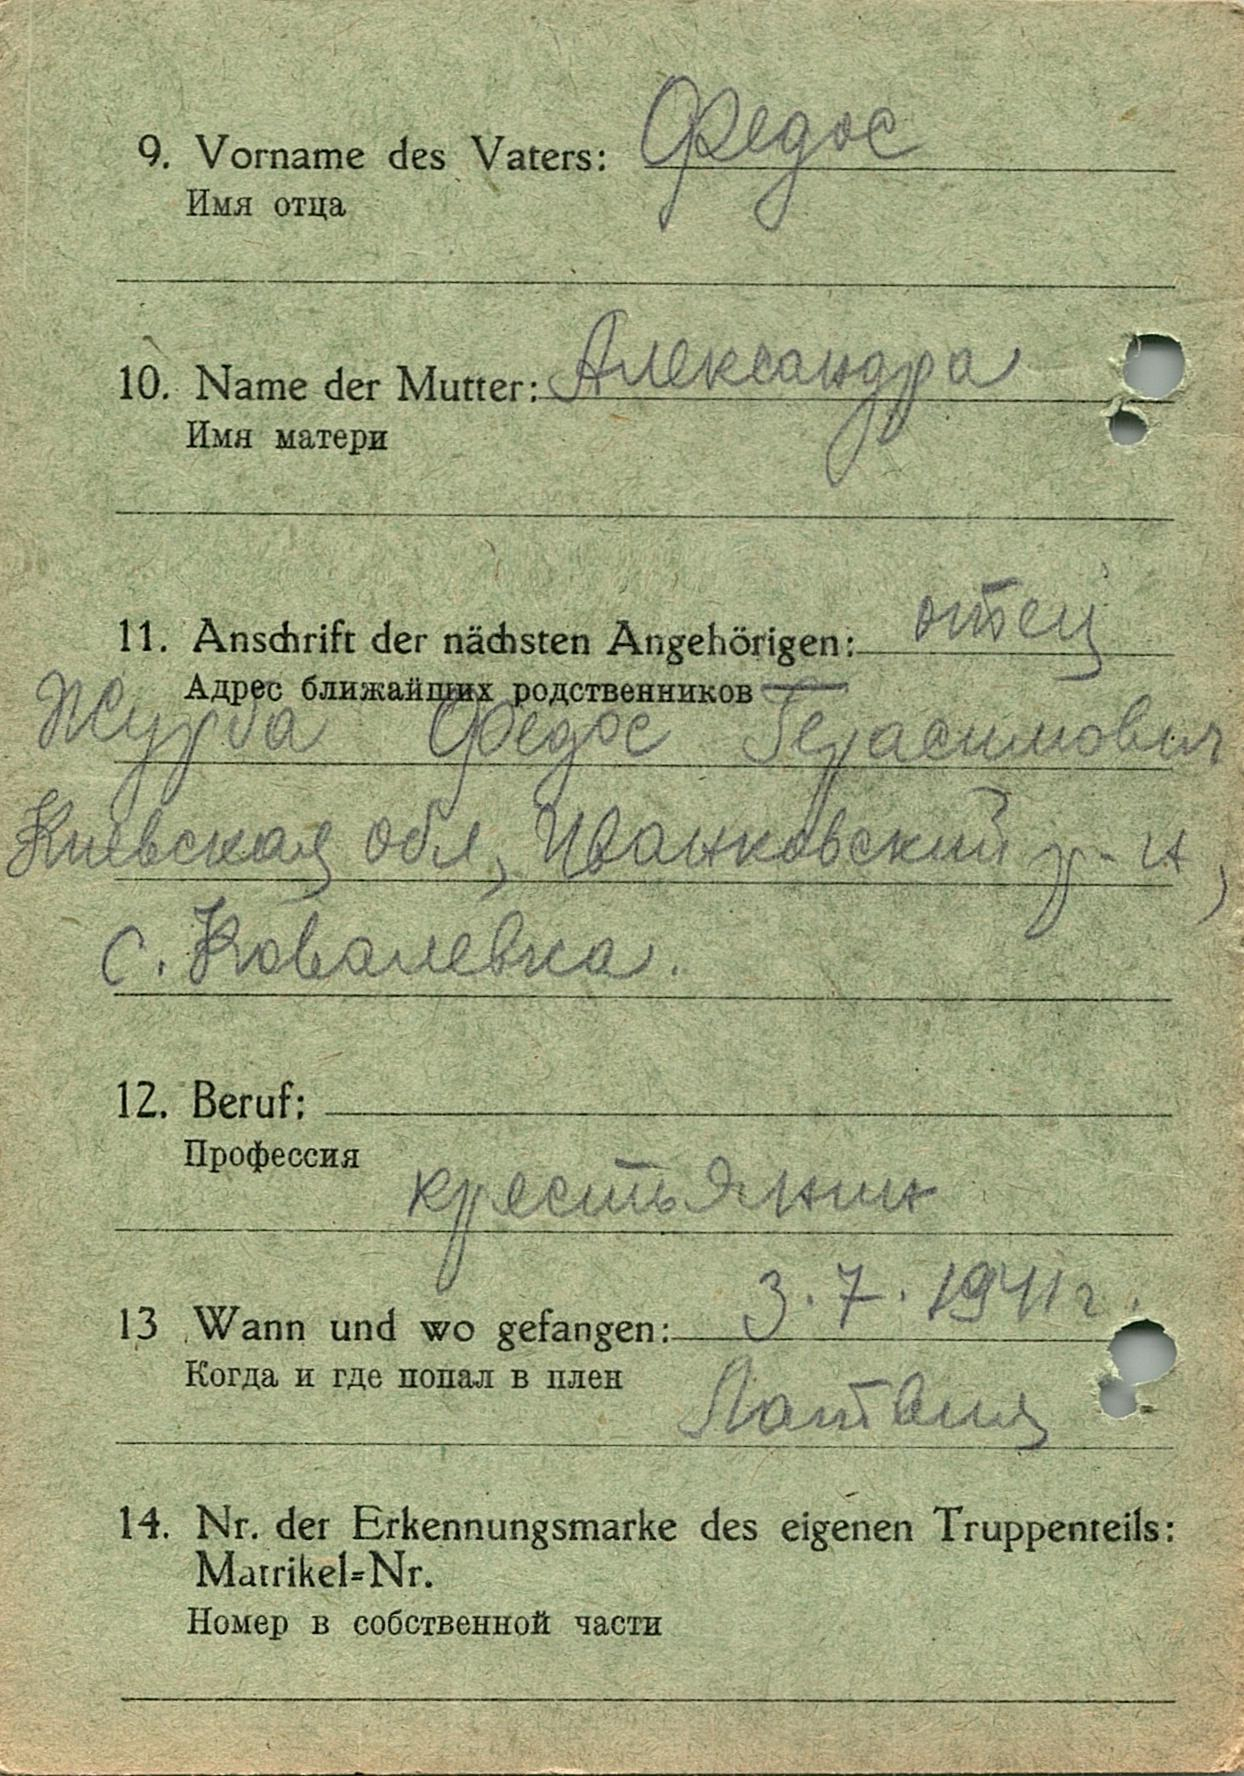 9. Vorname des Vaters: Федос
Имя отца
10. Name der Mutter: Александра
Имя матери
11. Anschrift der nächsten Angehörigen: отец
Адрес ближайших родственников
Журба Федос Герасимович
Киевская обл, Иванковский р-н,
с. Ковалевка.
12. Beruf:
Профессия
крестьянин
13 Wann und wo gefangen: 3.7.1941г.
Когда и где попал в плен
Латвия
14. Nr. der Erkennungsmarke des eigenen Truppenteils:
Matrikel=Nr.
Номер в собственной части